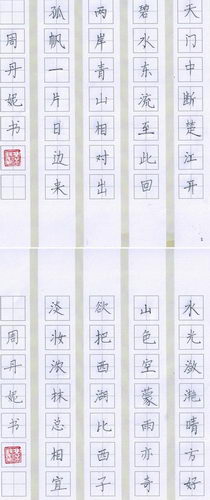 天门中断楚江开
碧水东流至此回
两岸青山相对出
孤帆一片日边来
周丹妮书
水光潋滟晴方好
山色空蒙雨亦奇
欲把西湖比西子
淡妆浓抹总相宜
周丹妮书